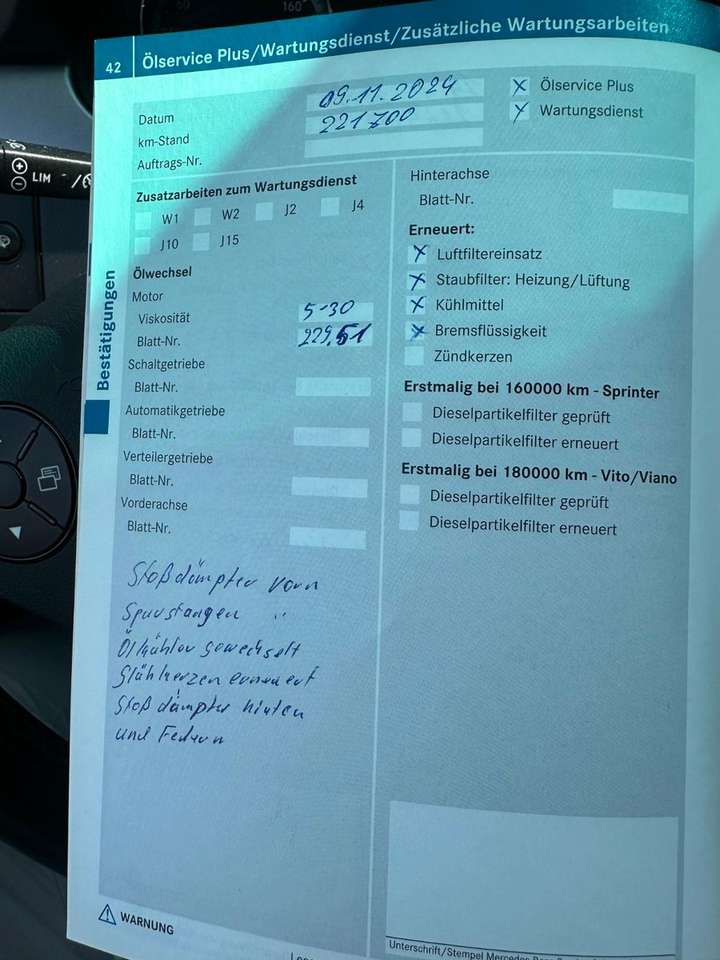 160°
LIM
42
Ölservice Plus/Wartungsdienst/Zusätzliche Wartungsarbeiten
Datum 09.11.2024
km-Stand 221700
Auftrags-Nr.
Ölservice Plus
Wartungsdienst
Zusatzarbeiten zum Wartungsdienst
W1 W2 J2 J4
J10 J15
Ölwechsel
Motor
Viskosität 5-30
Blatt-Nr. 229.51
Schaltgetriebe
Blatt-Nr.
Automatikgetriebe
Blatt-Nr.
Verteilergetriebe
Blatt-Nr.
Vorderachse
Blatt-Nr.
Stoßdämpfer vorn
Spurstangen "
Ölkühler gewechselt
Glühkerzen erneuert
Stoßdämpfer hinten
und Federn
Hinterachse
Blatt-Nr.
Erneuert:
Luftfiltereinsatz
Staubfilter: Heizung/Lüftung
Kühlmittel
Bremsflüssigkeit
Zündkerzen
Erstmalig bei 160000 km - Sprinter
Dieselpartikelfilter geprüft
Dieselpartikelfilter erneuert
Erstmalig bei 180000 km - Vito/Viano
Dieselpartikelfilter geprüft
Dieselpartikelfilter erneuert
Bestätigungen
WARNUNG
Unterschrift/Stempel